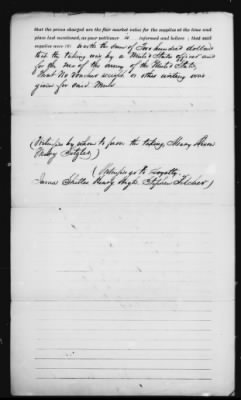 that the prices charged are the fair market value for the supplies at the time and
place last mentioned, as your petitioner is informed and believe; that said
supplies were worth the sum of Two hundred dollars
that the taking was by a United States officer and
for the use of the army of the United States,
That No Voucher receipt or other writing was
given for said Mule
(Witnesses by whom to prove the taking, Henry
)
(Witnesses as to Loyalty,
Henry Stephen )